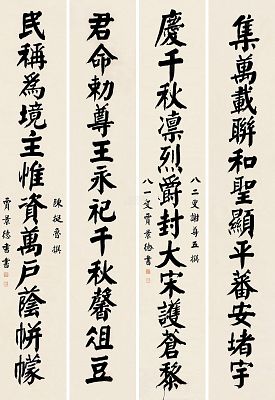 集萬載聯和聖顯平蕃安堵宇
八二叟謝尊五撰
慶千秋凛烈爵封大宋護蒼黎
八一叟賈景德書
君命勅尊王永祀千秋馨俎豆
陳挺撰
民稱爲境主惟資萬戶蔭帡幪
賈景德書